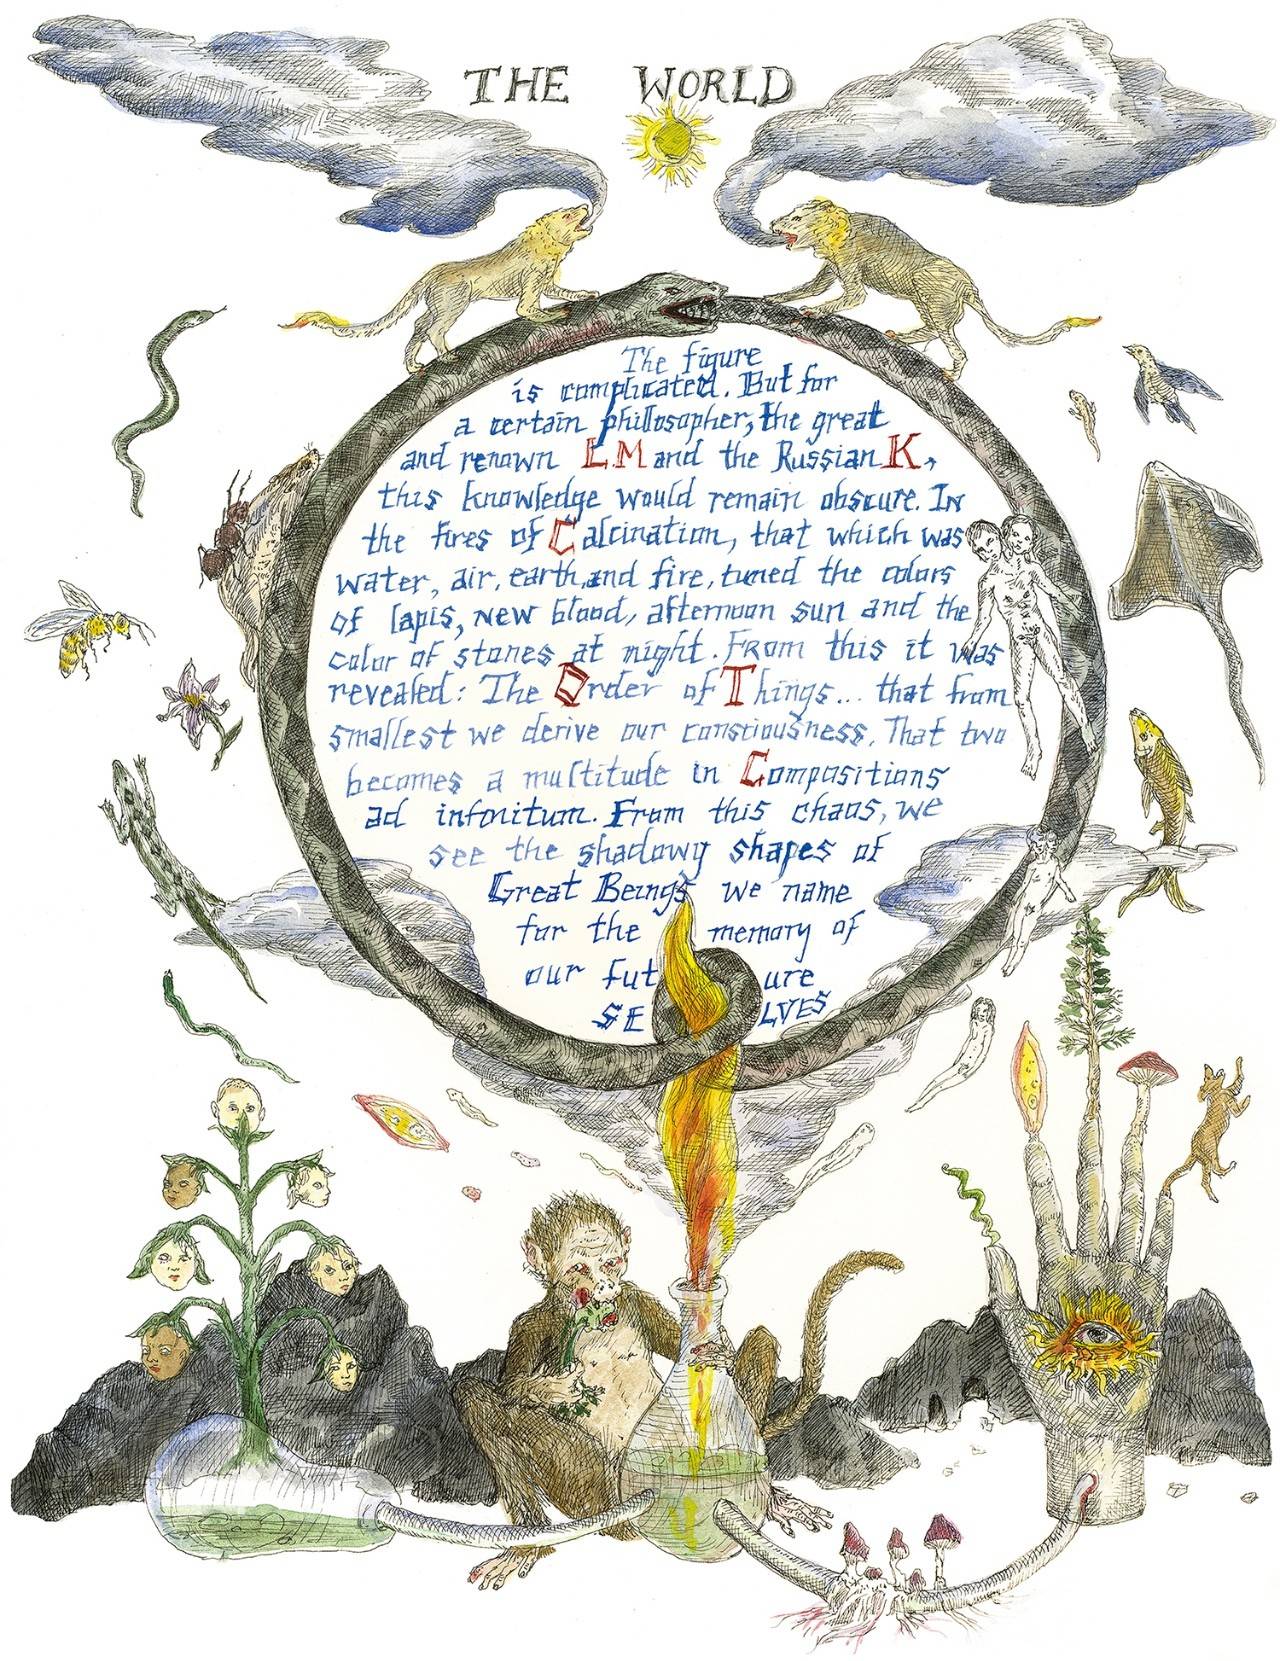 THE WORLD
The figure
is complicated. But for
a certain philosopher, the great
and renown L.M and the Russian K,
this knowledge would remain obscure. In
the fires of Calcination, that which was
water, air, earth, and fire, tuned the colors
of lapis, new blood, afternoon sun and the
color of stones at night. From this it was
revealed: The Order of Things... that from
smallest we derive our constiousness. That two
becomes a multitude in Compositions
ad infinitum. From this chaos, we
see the shadowy shapes of
Great Beings we name
for the memory of
our fut ure
SE LVES